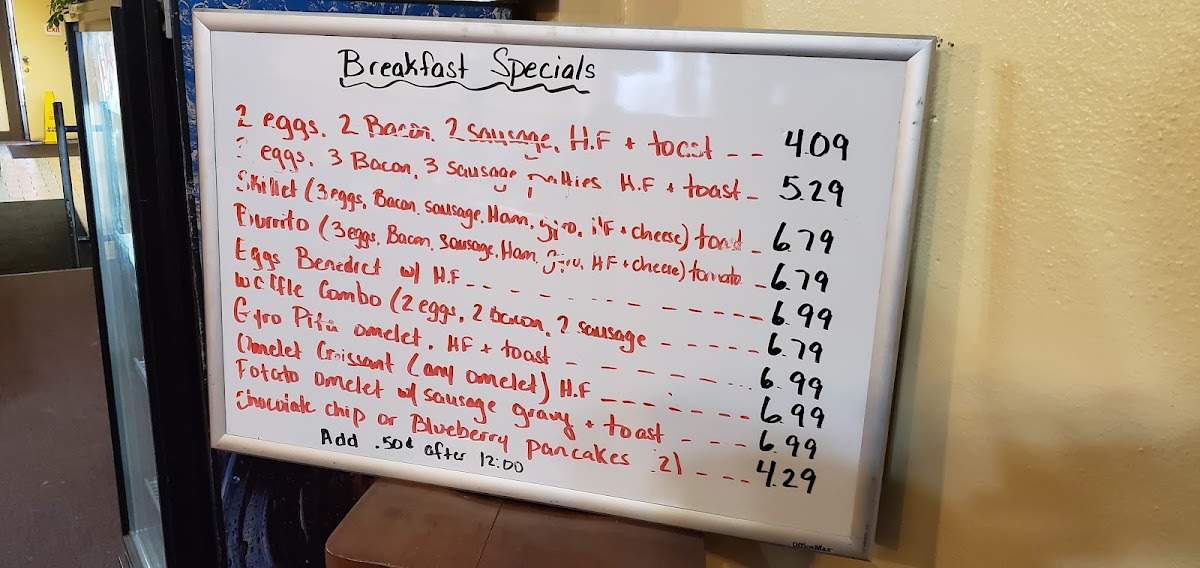 Breakfast Specials
2 eggs, 2 Bacon, 2 sausage, H.F + toast -- 4.09
eggs, 3 Bacon, 3 sausage patties H.F + toast - 5.29
Skillet (3 eggs, Bacon, sausage, Ham, gyro, H.F + cheese) toast - 6.79
Burrito (3 eggs, Bacon, Sausage, Ham, gyro, HF + cheese) tomato - 6.79
Eggs Benedict w/ H.F ------------ 6.99
Waffle Combo (2 eggs, 2 bacon, 2 sausage ----- 6.79
Gyro Pita omelet, HF + toast -------- 6.99
Omelet Croissant (any omelet) H.F ------- 6.99
Potato omelet w/ sausage gravy + toast --- 6.99
Chocolate chip or Blueberry pancakes (2) ---- 4.29
Add .50¢ after 12:00
OfficeMax
EXIT